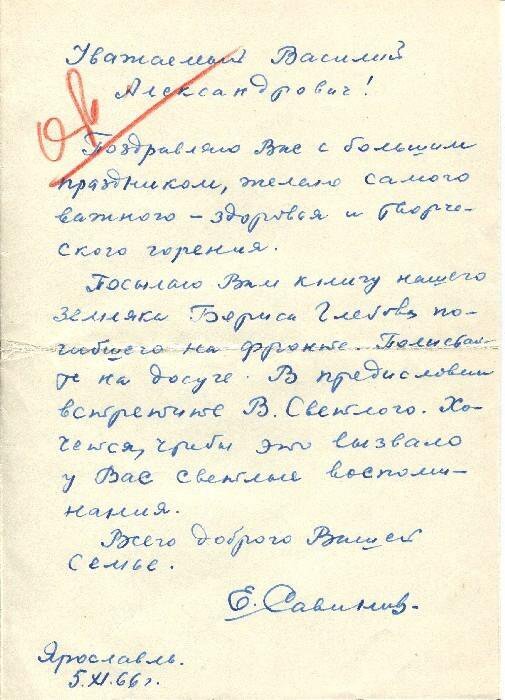 Уважаемый Василий
Александрович!
Поздравляю Вас с большим
праздником, желаю самого
важного – здоровья и творче-
ского горения.
Посылаю Вам книгу нашего
земляка Бориса Глебова, по-
гибшего на фронте. Полистай-
те на досуге. В предисловии
встретите В. Светлого. Хо-
чется, чтобы это вызвало
у Вас светлые воспоми-
нания.
Всего доброго Вашей
семье.
Е. Савинов.
Ярославль.
5.XI.66 г.